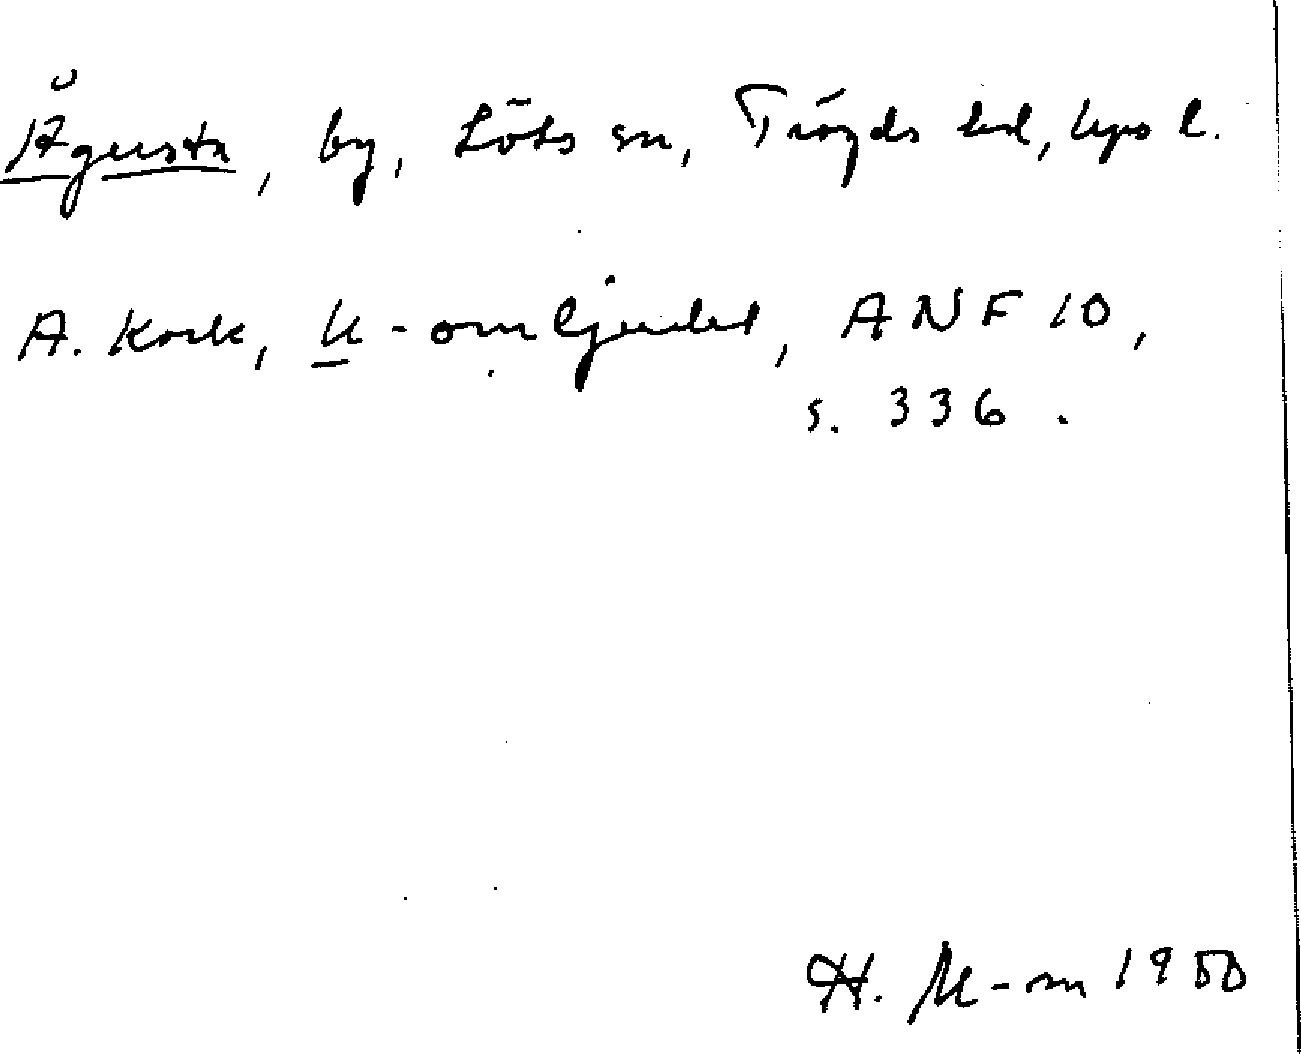 Ågusta, by, Löts sn, Trögds hd, Upps l.
A. Kock, U-omljudet, ANF 10,
s. 336.
H. M-m 1950